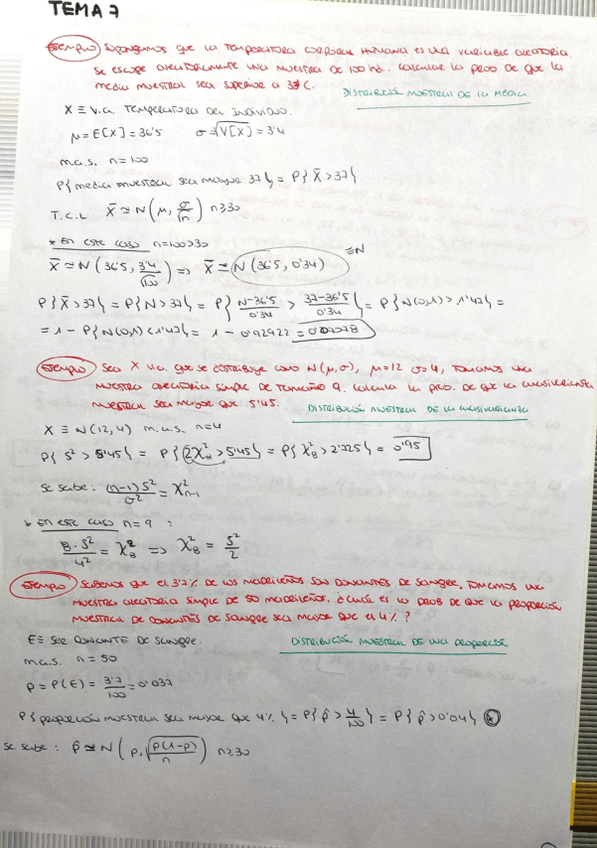 TEMA 7
Ejemplo Supongamos que la temperatura corporal humana es una variable aleatoria.
Se escoge aleatoriamente una muestra de 100 ind. Calcular la prob de que la
media muestral sea superior a 37°C.
DISTRIBUCIÓN MUESTRAL DE LA MEDIA
X ≡ v.a. Temperatura del individuo.
μ = E[X] = 36'5 σ = √V[X] = 3'4
m.a.s. n=100
P{media muestral sea mayor 37} = P{X̄ > 37}
T.C.L X̄ ≃ N(μ, σ/n) n≥30
* En este caso n=100>30
X̄ ≃ N(36'5, 3'4/√100) => X̄ ≃ N(36'5, 0'34) ≡N
P{X̄>37} = P{N>37} = P{N-36'5/0'34 > 37-36'5/0'34} = P{N(0,1)>1'47} =
= 1 - P{N(0,1)<1'47} = 1 - 0'92922 = 0'07078
Ejemplo Sea X v.a. que se distribuye como N(μ,σ), μ=12 σ=4, tomamos una
muestra aleatoria simple de tamaño 9. Calcula la prob. de que la cuasivarianza
muestral sea mayor que 5'45.
DISTRIBUCIÓN MUESTRAL DE LA CUASIVARIANZA
X ≡ N(12,4) m.a.s. n=4
P{S²>5'45} = P{2X²₈>5'45} = P{X²₈>2'725} = 0'95
Se sabe: (n-1)S²/σ² = X²n-1
* En este caso n=9 :
8·S²/4² = X²₈ => X²₈ = S²/2
Ejemplo Sabemos que el 3'7% de los madrileños son donantes de sangre, tomamos una
muestra aleatoria simple de 50 madrileños. ¿Cuál es la prob de que la proporción
muestral de donantes de sangre sea mayor que el 4%?
E≡ Ser donante de sangre.
DISTRIBUCIÓN MUESTRAL DE UNA PROPORCIÓN
m.a.s. n=50
p = P(E) = 3'7/100 = 0'037
P{proporción muestral sea mayor que 4%} = P{p̂ > 4/100} = P{p̂>0'04} *
Se sabe: p̂ ≃ N(p, √p(1-p)/n) n≥30